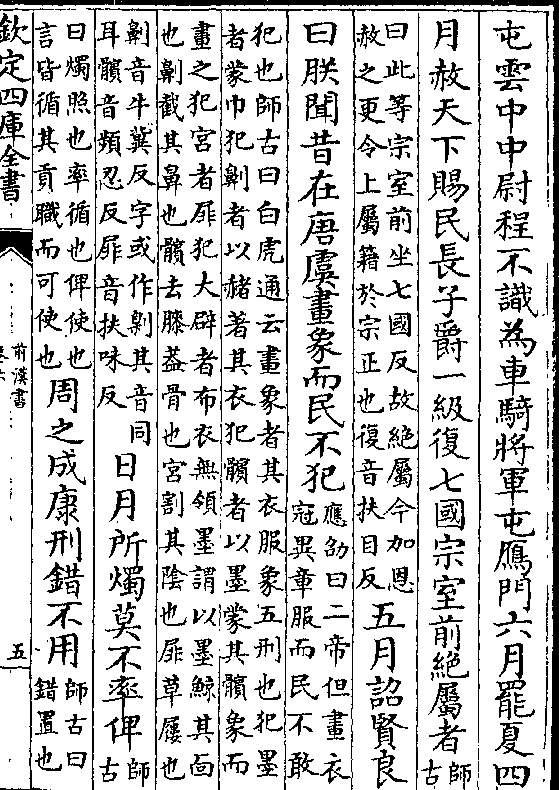 屯雲中中尉程不識為車騎將軍屯鴈門六月罷夏四
月赦天下賜民長子爵一級復七國宗室前絕屬者師古
曰此等宗室前坐七國反故絕屬今加恩
赦之更令上屬籍於宗正也復音扶目反
五月詔賢良
曰朕聞昔在唐虞畫象而民不犯
應劭曰二帝但畫衣
冠異章服而民不敢
犯也師古曰白虎通云畫象者其衣服象五刑也犯墨
者蒙巾犯劓者以赭著其衣犯髕者以墨蒙其髕象而
畫之犯宮者屝犯大辟者布衣無領墨謂以墨鯨其面
也劓截其鼻也髕去膝葢骨也宮割其陰也屝草屨也
劓音牛冀反字或作劓其音同
耳髕音頻忍反屝音扶味反
日月所燭莫不率俾
師
古
曰燭照也率循也俾使也
言皆循其貢職而可使也
周之成康刑錯不用
師古曰
錯置也
欽定四庫全書
前漢書
五